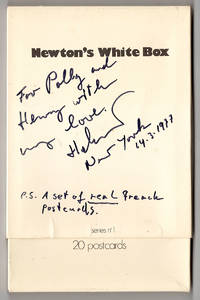 Newton's White Box
For Polly and
Henry with
my love.
Helmut
New York
14.3.1977
P.S. A set of real French
postcards.
series n°1
20 postcards